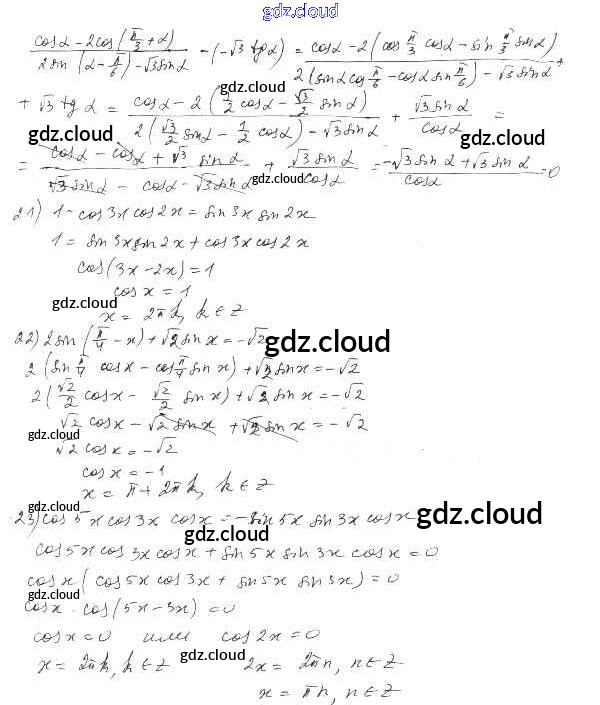 gdz.cloud
(cosα - 2cos(π/3 + α)) / (2sin(α - π/6) - √3 sinα) - (-√3 tgα) = (cosα - 2(cos π/3 cosα - sin π/3 sinα)) / (2(sinα cos π/6 - cosα sin π/6) - √3 sinα) +
+ √3 tgα = (cosα - 2(1/2 cosα - √3/2 sinα)) / (2(√3/2 sinα - 1/2 cosα) - √3 sinα) + (√3 sinα)/(cosα) =
gdz.cloud
gdz.cloud gdz.cloud
= (cosα - cosα + √3 sinα) / (√3 sinα - cosα - √3 sinα) + (√3 sinα)/(cosα) = (-√3 sinα + √3 sinα)/(cosα) = 0
gdz.cloud
21) 1 - cos3x cos2x = sin3x sin2x
1 = sin3x sin2x + cos3x cos2x
cos(3x - 2x) = 1
cos x = 1
gdz.cloud
x = 2πk, k ∈ Z
22) 2sin(π/4 - x) + √2 sin x = -√2
gdz.cloud gdz.cloud
2(sin π/4 cos x - cos π/4 sin x) + √2 sin x = -√2
2(√2/2 cos x - √2/2 sin x) + √2 sin x = -√2
√2 cos x - √2 sin x + √2 sin x = -√2
gdz.cloud
√2 cos x = -√2
cos x = -1
x = π + 2πk, k ∈ Z
gdz.cloud
23) cos5x cos3x cosx = -sin5x sin3x cosx
gdz.cloud
cos5x cos3x cosx + sin5x sin3x cosx = 0
cosx(cos5x cos3x + sin5x sin3x) = 0
gdz.cloud
cosx · cos(5x - 3x) = 0
cosx = 0 или cos2x = 0
x = 2πk, k ∈ Z 2x = 2πn, n ∈ Z
gdz.cloud
x = πn, n ∈ Z
gdz.cloud